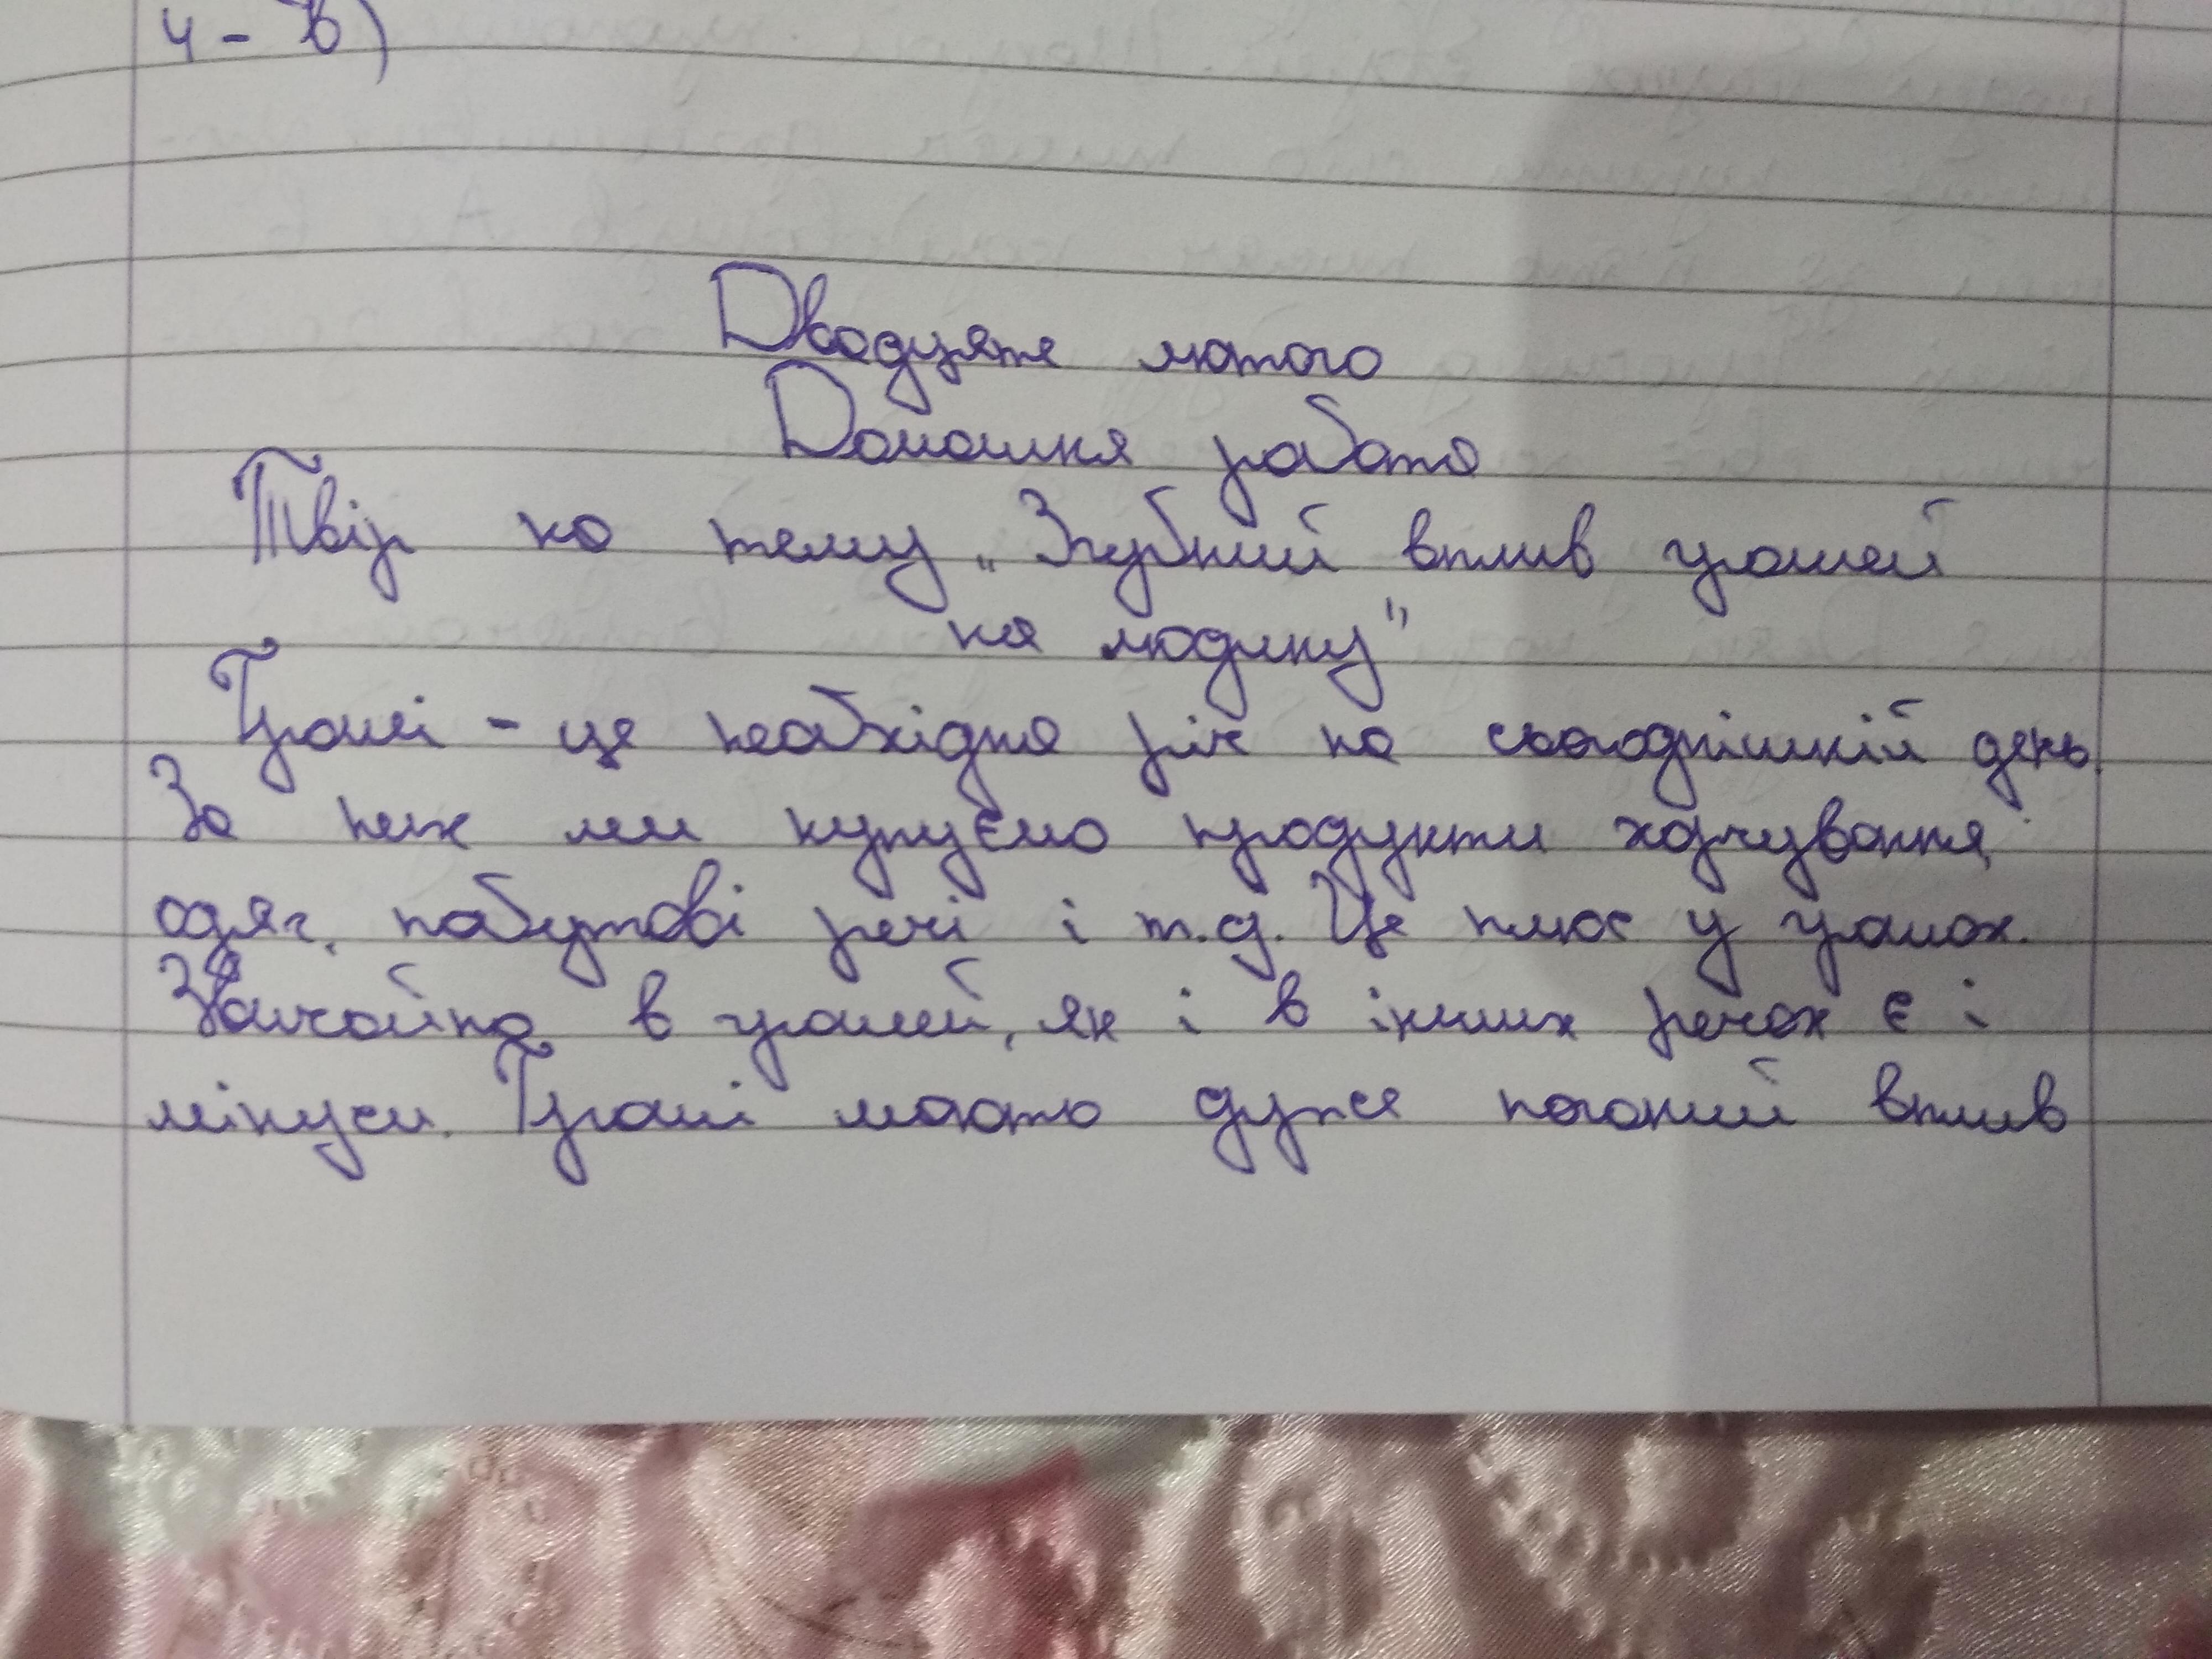 4 - в)
Двадцяте лютого
Домашня работа
Твір на тему „Згубний вплив грошей
на людину"
Гроші - це необхідна річ на сьогоднішній день.
За них ми купуємо продукти харчування,
одяг, побутові речі і т.д. Це плюс у грошах.
Звичайно в грошей, як і в інших речах є і
мінуси. Гроші мають дуже поганий вплив